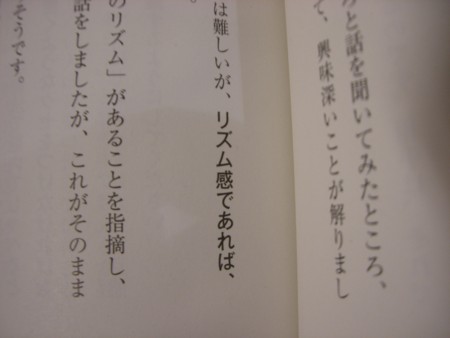 と話を聞いてみたところ、
て、興味深いことが解りまし
は難しいが、リズム感であれば、
。
のリズム」があることを指摘し、
話をしましたが、これがそのまま
そうです。